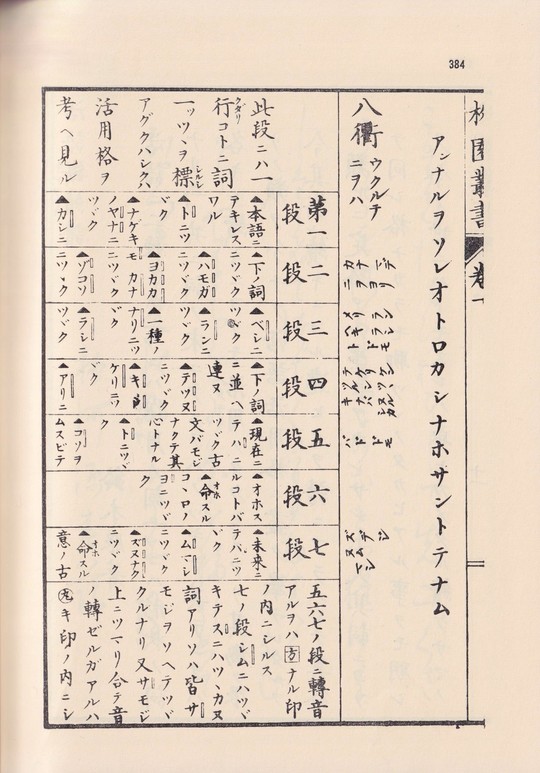 384
杉園叢書 卷一
アンナルヲソレオトロカシナホサントテナム
八衢
ウクルテ
ニヲハ
此段ニハ一
行コトニ詞
一ツヅヽヲ標
アグクハシクハ
活用格ヲ
考ヘ見ル
第一段
▲本語ニ
テキレス
ワル
▲トニツ
ヅク
▲ナゲキ
ノヤナニ
ツヾク
▲カシニ
ツヾク
二段
▲下ノ詞
ニツヾク
▲ハモガ
ニツヾク
▲ヨカカ
モ カナ
ニツヾク
▲ゾコソ
ニツヾク
三段
▲ベシニ
ツヾク
▲ランニ
ツヾク
▲一種ノ
ナリニツ
ヾク
▲ラシニ
ツヾク
四段
▲下ノ詞
ニ並ヘ
連ヌ
▲テツヌ
ニツヾク
ケリニツ
ヾク
▲アリニ
ツヾク
五段
▲現在ニ
テハ ニ
ツヾク古
文バモジ
ナクテ其
心トナル
▲トニツヾ
ク
▲コソヲ
ムスビテ
六段
▲オホス
ルコトバ
▲命スル
コヽロノ
ヨニツヾ
ク
七段
▲未來ニ
テバニツ
ヾク
▲ムマシ
ニツヾク
▲ズヌナク
ニツヾク
▲命スル
意ノ古
五六七ノ段ニ轉音
アルヲハ方ナル印
ノ内ニシルス
七ノ段シムニハツヾ
キテスニハツヽカヌ
詞アリソハ皆サ
モジヲソヘテツヾ
クルナリ又サモジ
上ニツマリ合テ音
ノ轉ゼルガアルハ
キ印ノ内ニシ